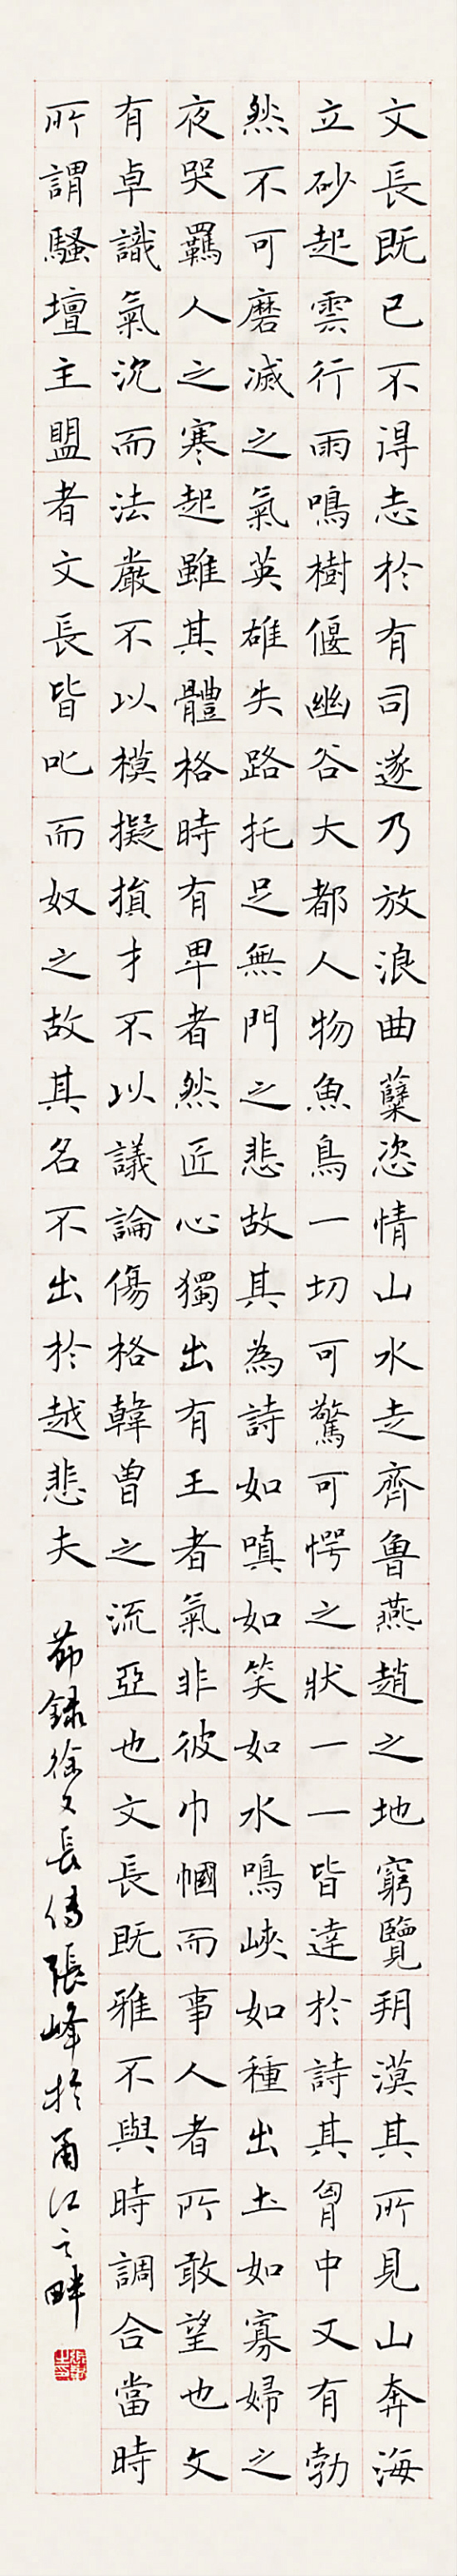 文長既已不得志於有司遂乃放浪曲糵恣情山水走齊魯燕趙之地窮覽朔漠其所見山奔海
立砂起雲行雨鳴樹偃幽谷大都人物魚鳥一切可驚可愕之狀一一皆達於詩其胷中又有勃
然不可磨滅之氣英雄失路托足無門之悲故其為詩如嗔如笑如水鳴峽如種出土如寡婦之
夜哭羈人之寒起雖其體格時有卑者然匠心獨出有王者氣非彼巾幗而事人者所敢望也文
有卓識氣沈而法嚴不以模擬損才不以議論傷格韓曾之流亞也文長既雅不與時調合當時
所謂騷壇主盟者文長皆叱而奴之故其名不出於越悲夫 節録徐文長傳張峰於甬江之畔